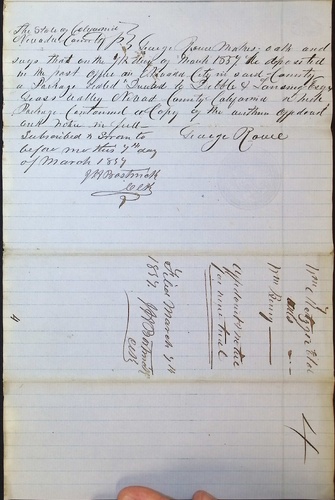 The State of California
Nevada County
George Rowe Makes oath and
says that on the 7th day of March 1857 he deposited
in the post office in Nevada City in said County
a Package sealed Directed to Dibble & Lansing Esqrs
Grass Valley Nevada County California which
Package Contained a Copy of the within
and notice in full
George Rowe
Subscribed & Sworn to
before me this 7th day
of March 1857
Clk
Wm
vs
Wm
notice
for new trial
Filed March 7th
1857
Clk
4